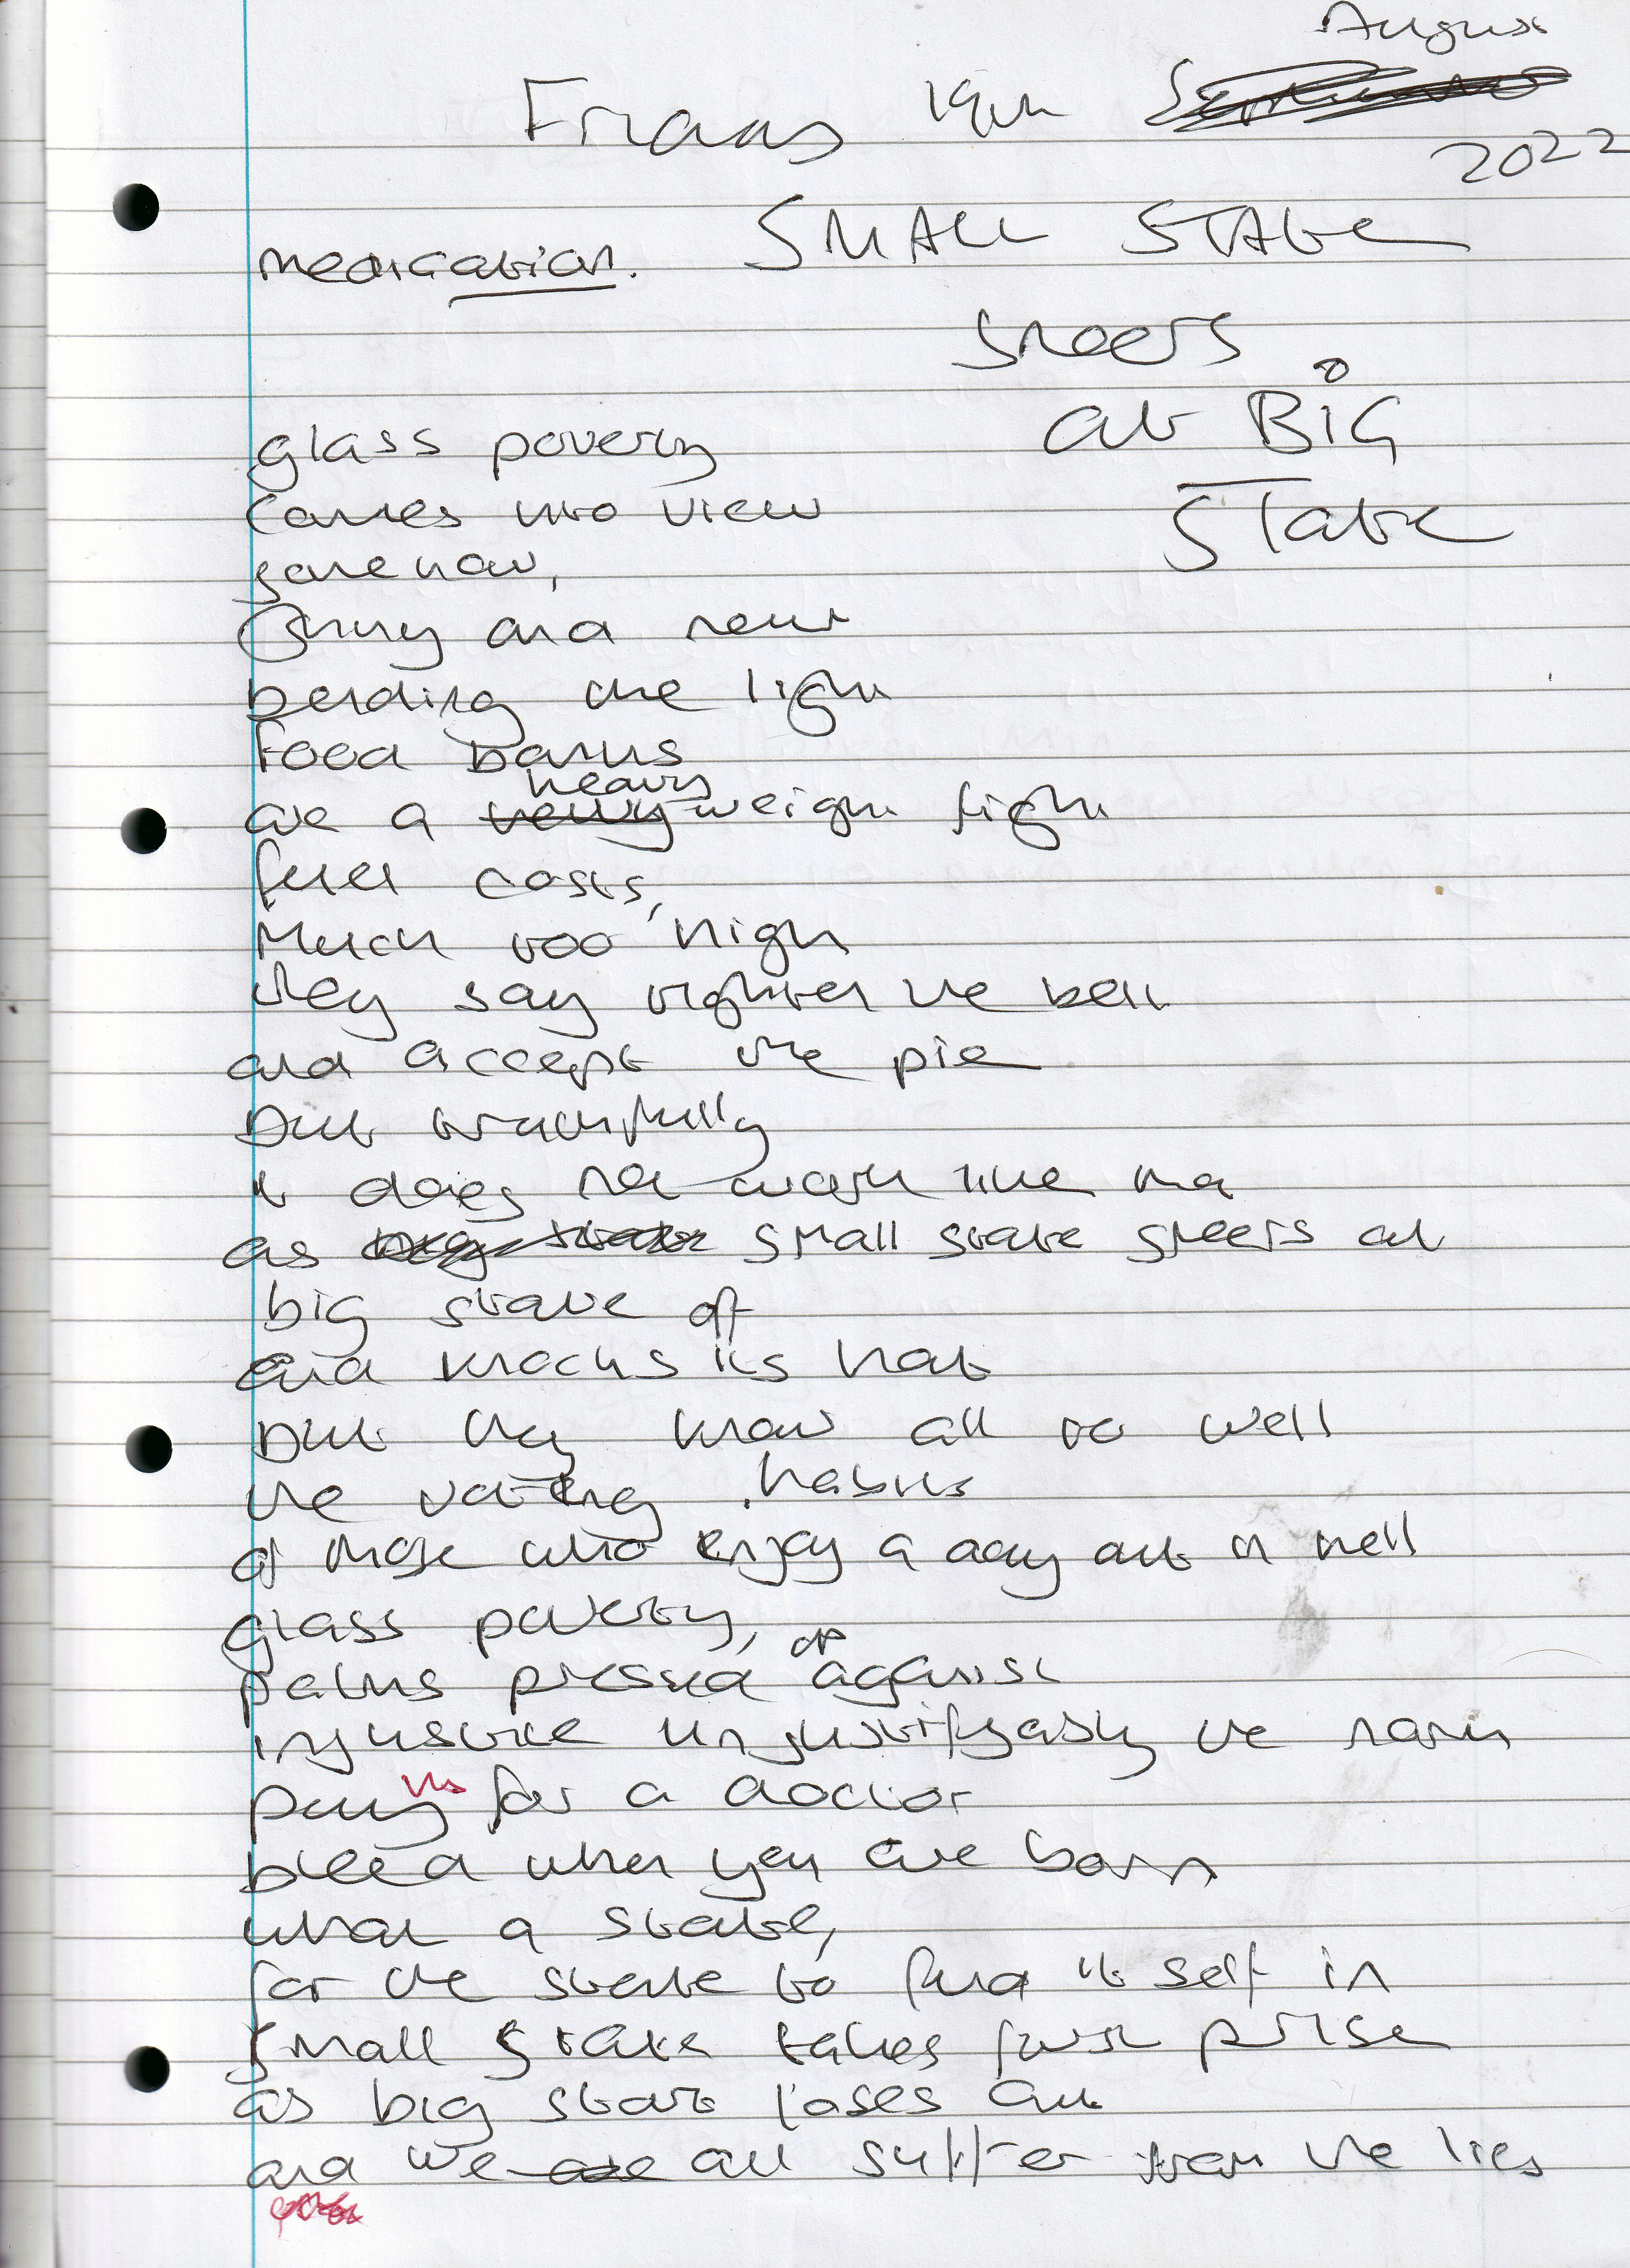 August
Friday 19th
2022
SMALL STATE
medication.
sneers
at BIG
STate
glass poverty
comes into view
somehow,
Shiny and new
bending the light
Food banks
heavy
are a weight fight
fuel costs,
Much too high
they say tighten the belt
and accept the pie
but
it does not work like that
as small state sneers at
big state
off
and knocks its hat
but they know all to well
the voting habits
of those who enjoy a day out in hell
glass poverty,
palms pressed up against
injustice unjustifyably the norm
pay for a doctor
bleed when you are born
what a state,
for the state to find it self in
small state takes first prise
as big state loses out
and we all suffer from the lies